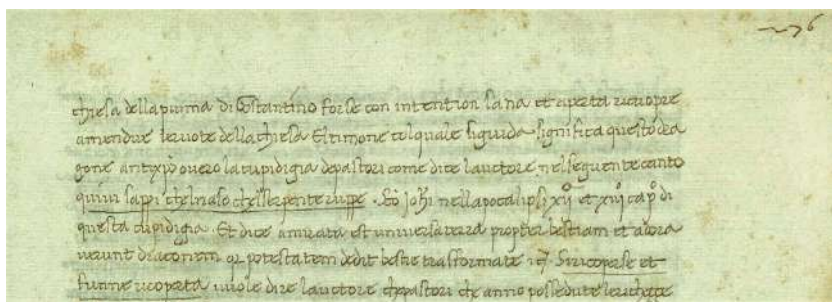 276
chiesa della piuma di Costantino forse con intention sana et aperta ricuopre
amendue le ruote della chiesa El timone col quale si guida significa questo dra
gone antixpo overo la cupidigia de pastori come dice lauctore nel sequente canto
quivi sappi chel vaso chel serpente ruppe . Sco johi nell apocalipsi xij et xiij capo di
questa cupidigia . Et dice amirata est universa terra propter bestiam et adora
verunt draconem qr potestatem dedit bestie trasformate Si ricoperse et
funne ricoperta vuole dire lauctore che pastori che anno possedute le richeçe